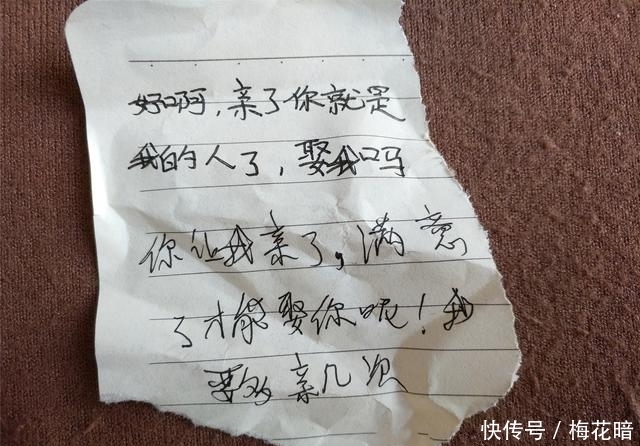 好啊，亲了你就是
我的人了，娶我吗
你让我亲了，满意
了才能娶你呢！我
要多亲几次
快传号 / 梅花暗